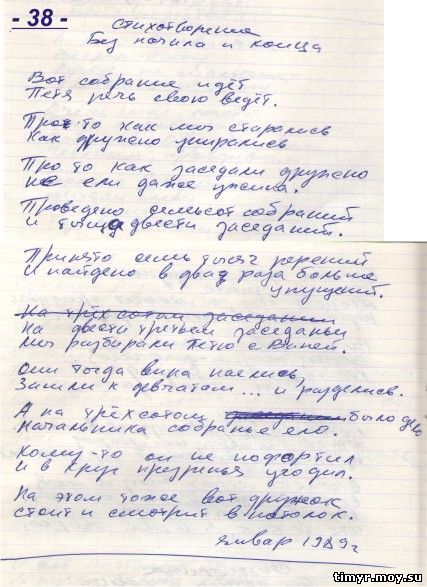 - 38 -
Стихотворение
Без начала и конца
Вот собрание идёт
Петя речь свою ведёт.
Про то как мы старались
Как дружено упирались
Про то как заседали дружено
не ели даже ужина.
Проведено семьсот собраний
и тыща двести заседаний.
Принято семь тысяч решений
И найдено в два раза больше
упущений.
На трёхсотом заседании
На двести третьем заседаньи
Мы разбирали Петю с Ваней.
Они тогда вина напились,
Зашли к девчатам... и разделись.
А на трёхсотом было дело
Начальника собранье ело.
Кому-то он не подфортил
и в круг презренья угодил.
На этом тоже вот дружок
стоит и смотрит в потолок.
январ 1989г
timyr.moy.su